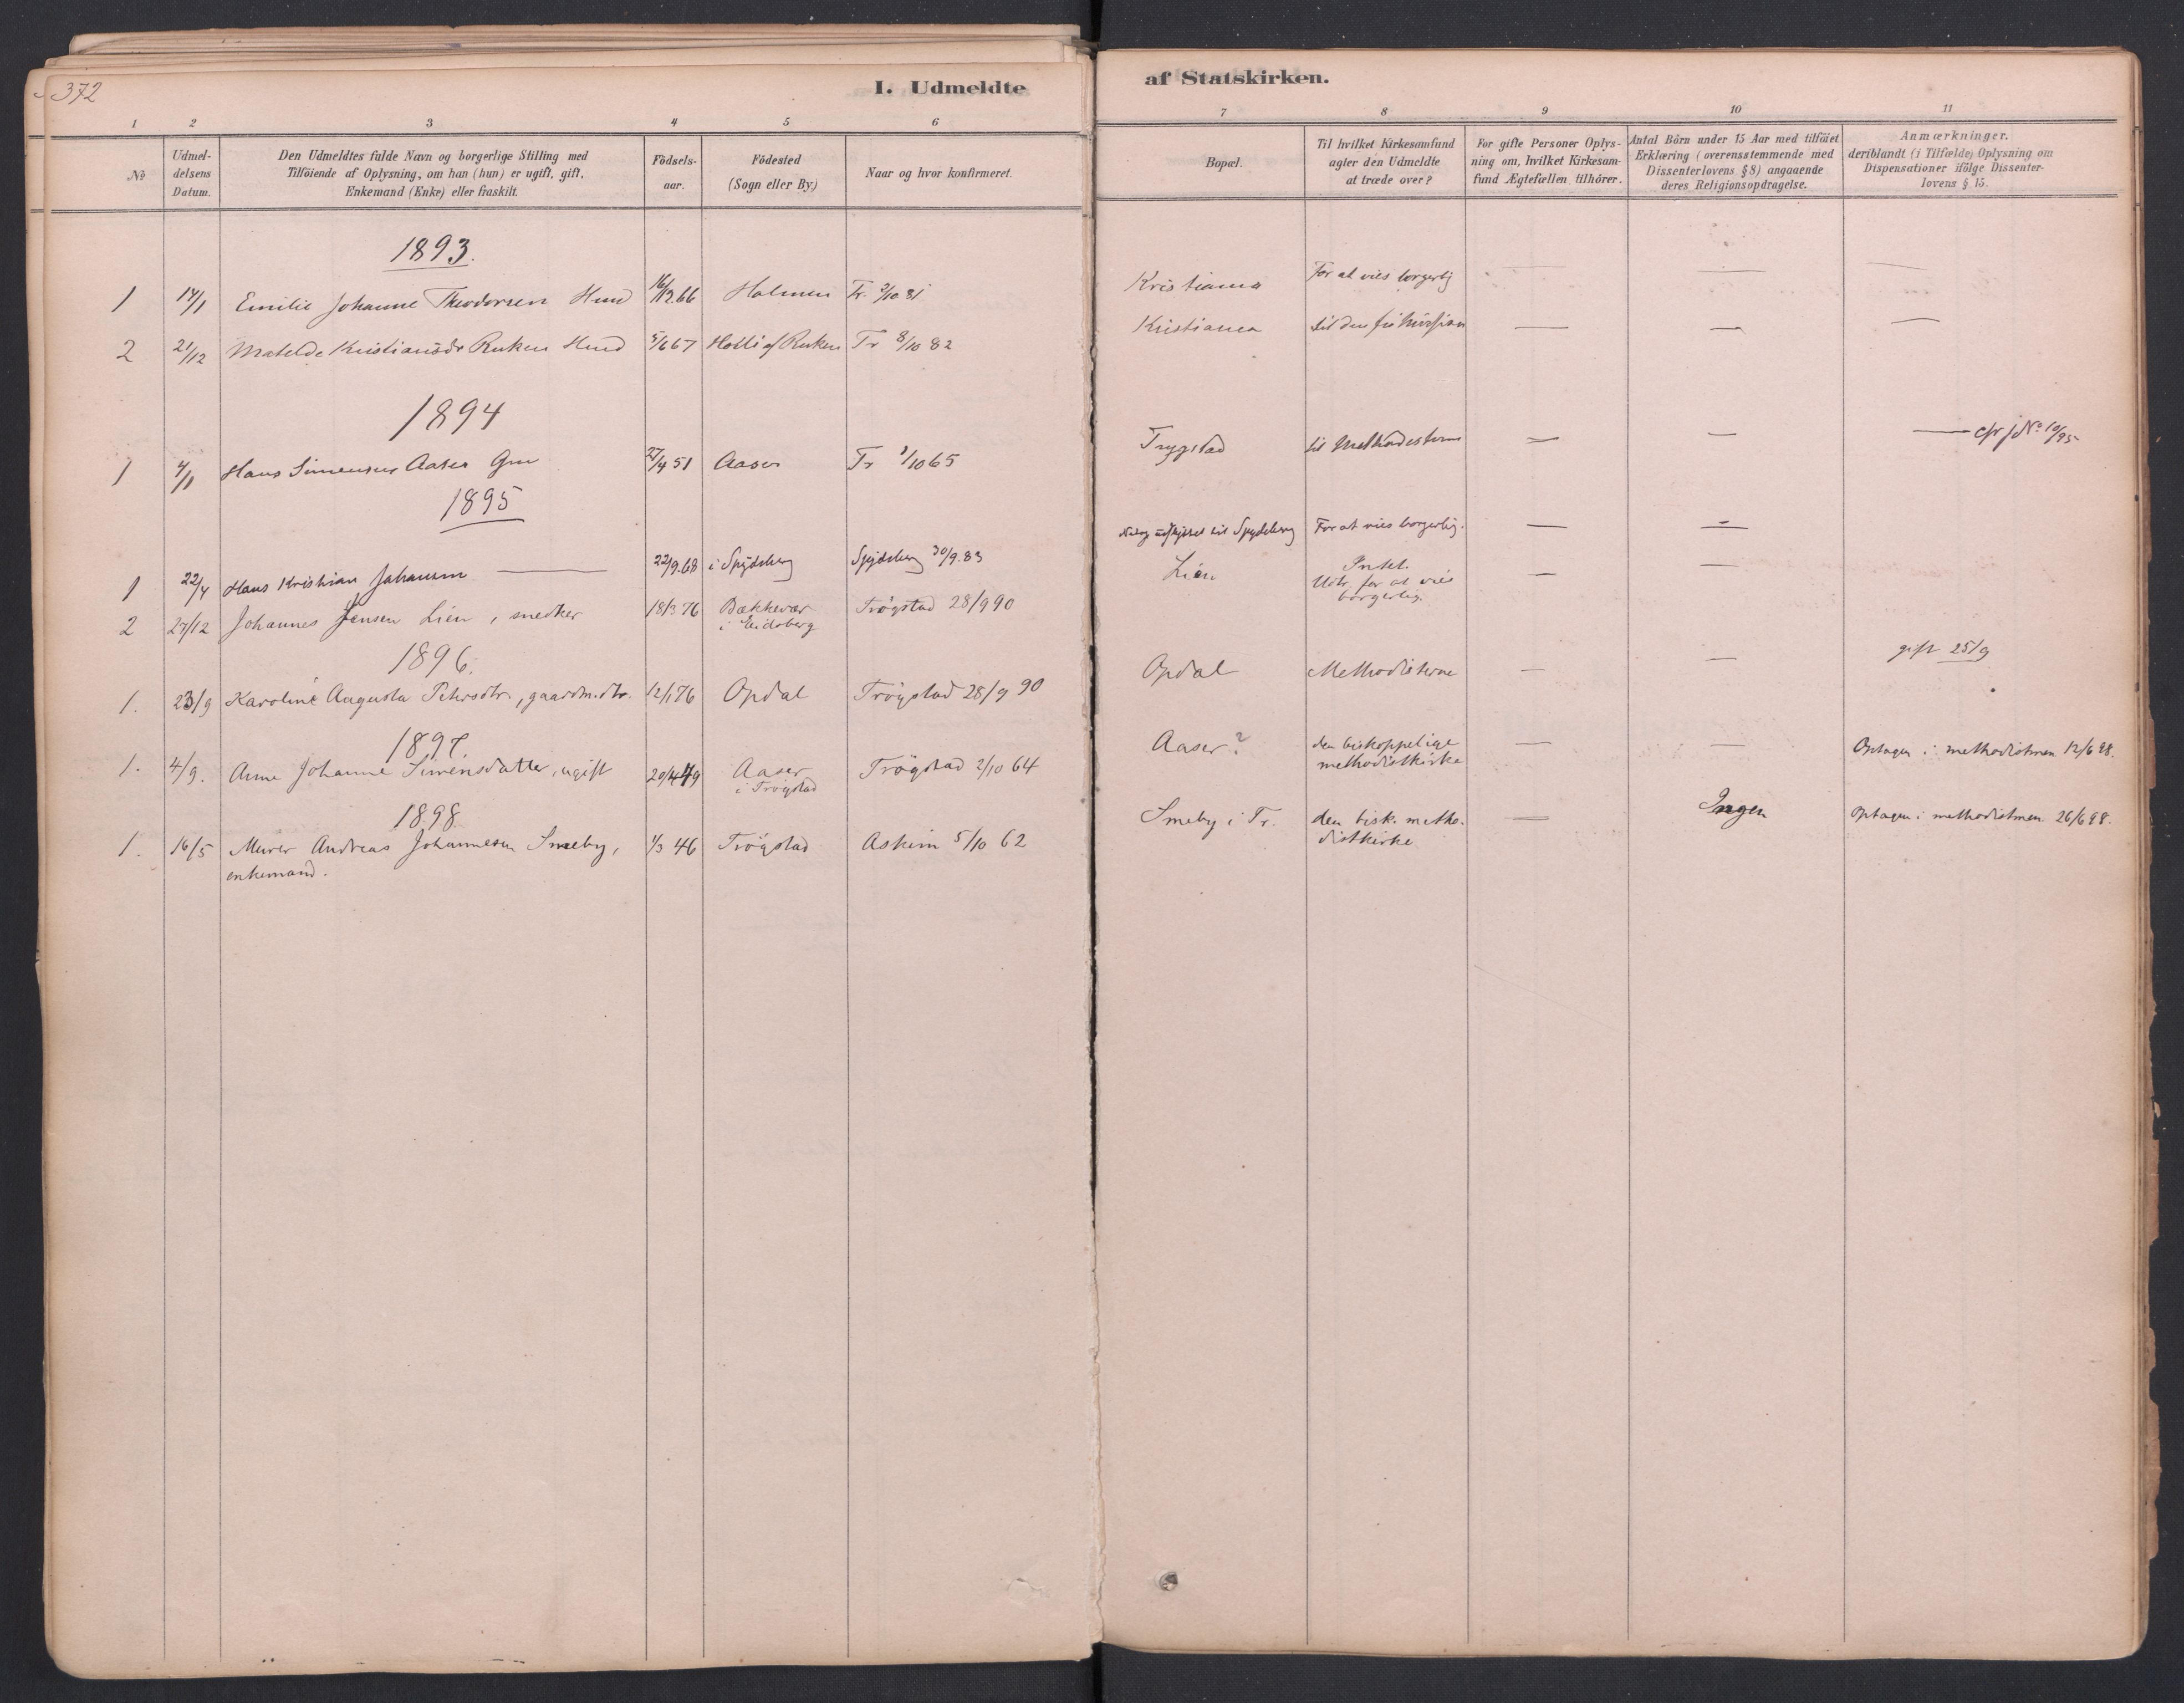 372
I. Udmeldte
af Statskirken.
1 2 3 4 5 6 7 8 9 10 11
No
Udmel-
delsens
Datum.
Den Udmeldtes fulde Navn og borgerlige Stilling med
Tilföiende af Oplysning, om han (hun) er ugift, gift,
Enkemand (Enke) eller fraskilt.
Födsels-
aar.
Födested
(Sogn eller By)
Naar og hvor konfirmeret.
Bopæl.
Til hvilket Kirkesamfund
agter den Udmeldte
at træde over?
For gifte Personer Oplys-
ning om, hvilket Kirkesam-
fund Ægtefællen tilhörer.
Antal Börn under 15 Aar med tilföiet
Erklæring (overensstemmende med
Dissenterlovens § 8) angaaende
deres Religionsopdragelse.
Anmærkninger,
deriblandt (i Tilfælde) Oplysning om
Dispensationer ifölge Dissenter-
lovens § 15.
1893.
1 14/1 Emilie Johanne Theodorsen 16/12.66 Holmen Tr. 2/10 81 Kristiania For at vies borgerlig — — —
2 21/12 Matelde Kristiansdr Ruken 5/6 67 Ruken Tr 8/10 82 Kristiania til den fri Mission — — —
1894
1 4/1 Hans Simensen Aaser Gm 27/4 51 Aaser Tr 1/10 65 Trygstad til Methodisterne — — — cfr No 10/95
1895
1 22/4 Hans Kristian Johansen — 22/9.68 i Spydeberg Spydeberg 30/9.83 til Spydeberg For at vies borgerlig. — —
2 27/12 Johannes Jensen Lien, snedker 18/3 76 Bækkevar
i Eidsberg Trögstad 28/9 90 Lien
Udtr. for at vies
borgerlig. — —
1896.
1. 23/9 Karoline Augusta Petersdtr., gaardm.dtr. 12/1 76 Opdal Trögstad 28/9 90 Opdal Methodisterne — — gift 25/9
1897.
1. 4/9. Anne Johanne Simensdatter, ugift 20/4 49 Aaser
i Trögstad Trögstad 2/10 64 Aaser? den biskoppelige
methodistkirke — — Optagen i methodistmen 12/6 98.
1898
1. 16/5 Murer Andreas Johannesen Smeby,
enkemand. 1/3 46 Trögstad Askim 5/10 62 Smeby i Tr. den bisk. metho-
distkirke — Ingen Optagen i methodistmen 26/6 98.